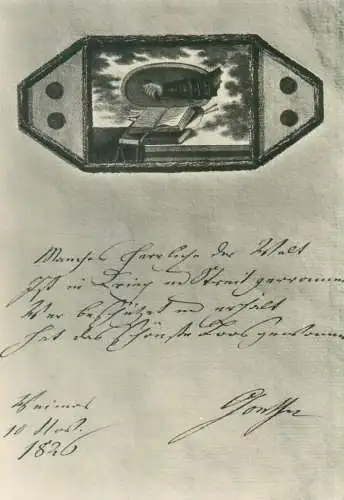 Manches Herrliche der Welt
Ist in Krieg u Streit zerronnen
Wer beschützet u erhält
Hat das schönste Loos gewonnen
Weimar
10 Nov.
1826
Goethe